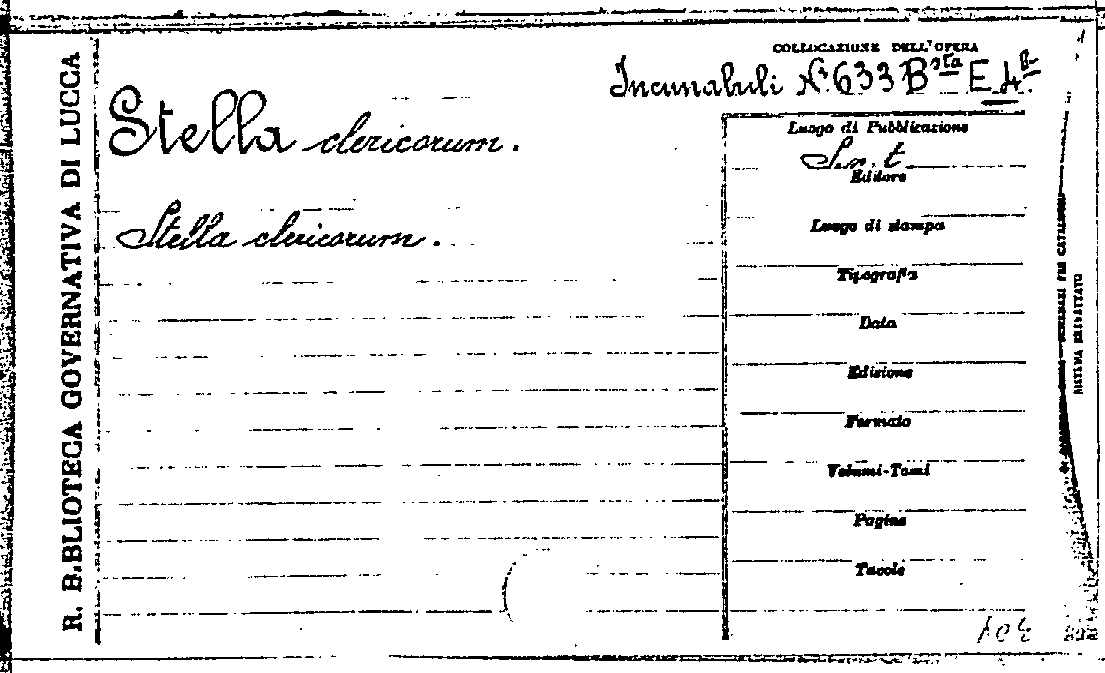 R. B.BLIOTECA GOVERNATIVA DI LUCCA
COLLOCAZIONE DELL'OPERA
Incunabuli N. 633 B.sta E 4
Stella clericorum.
Stella clericorum.
Luogo di Pubblicazione
S. n. t.
Editore
Luogo di stampa
Tipografia
Data
Edizione
Formato
Volumi-Tomi
Pagine
Tavole
SISTEMA BREVETTATO